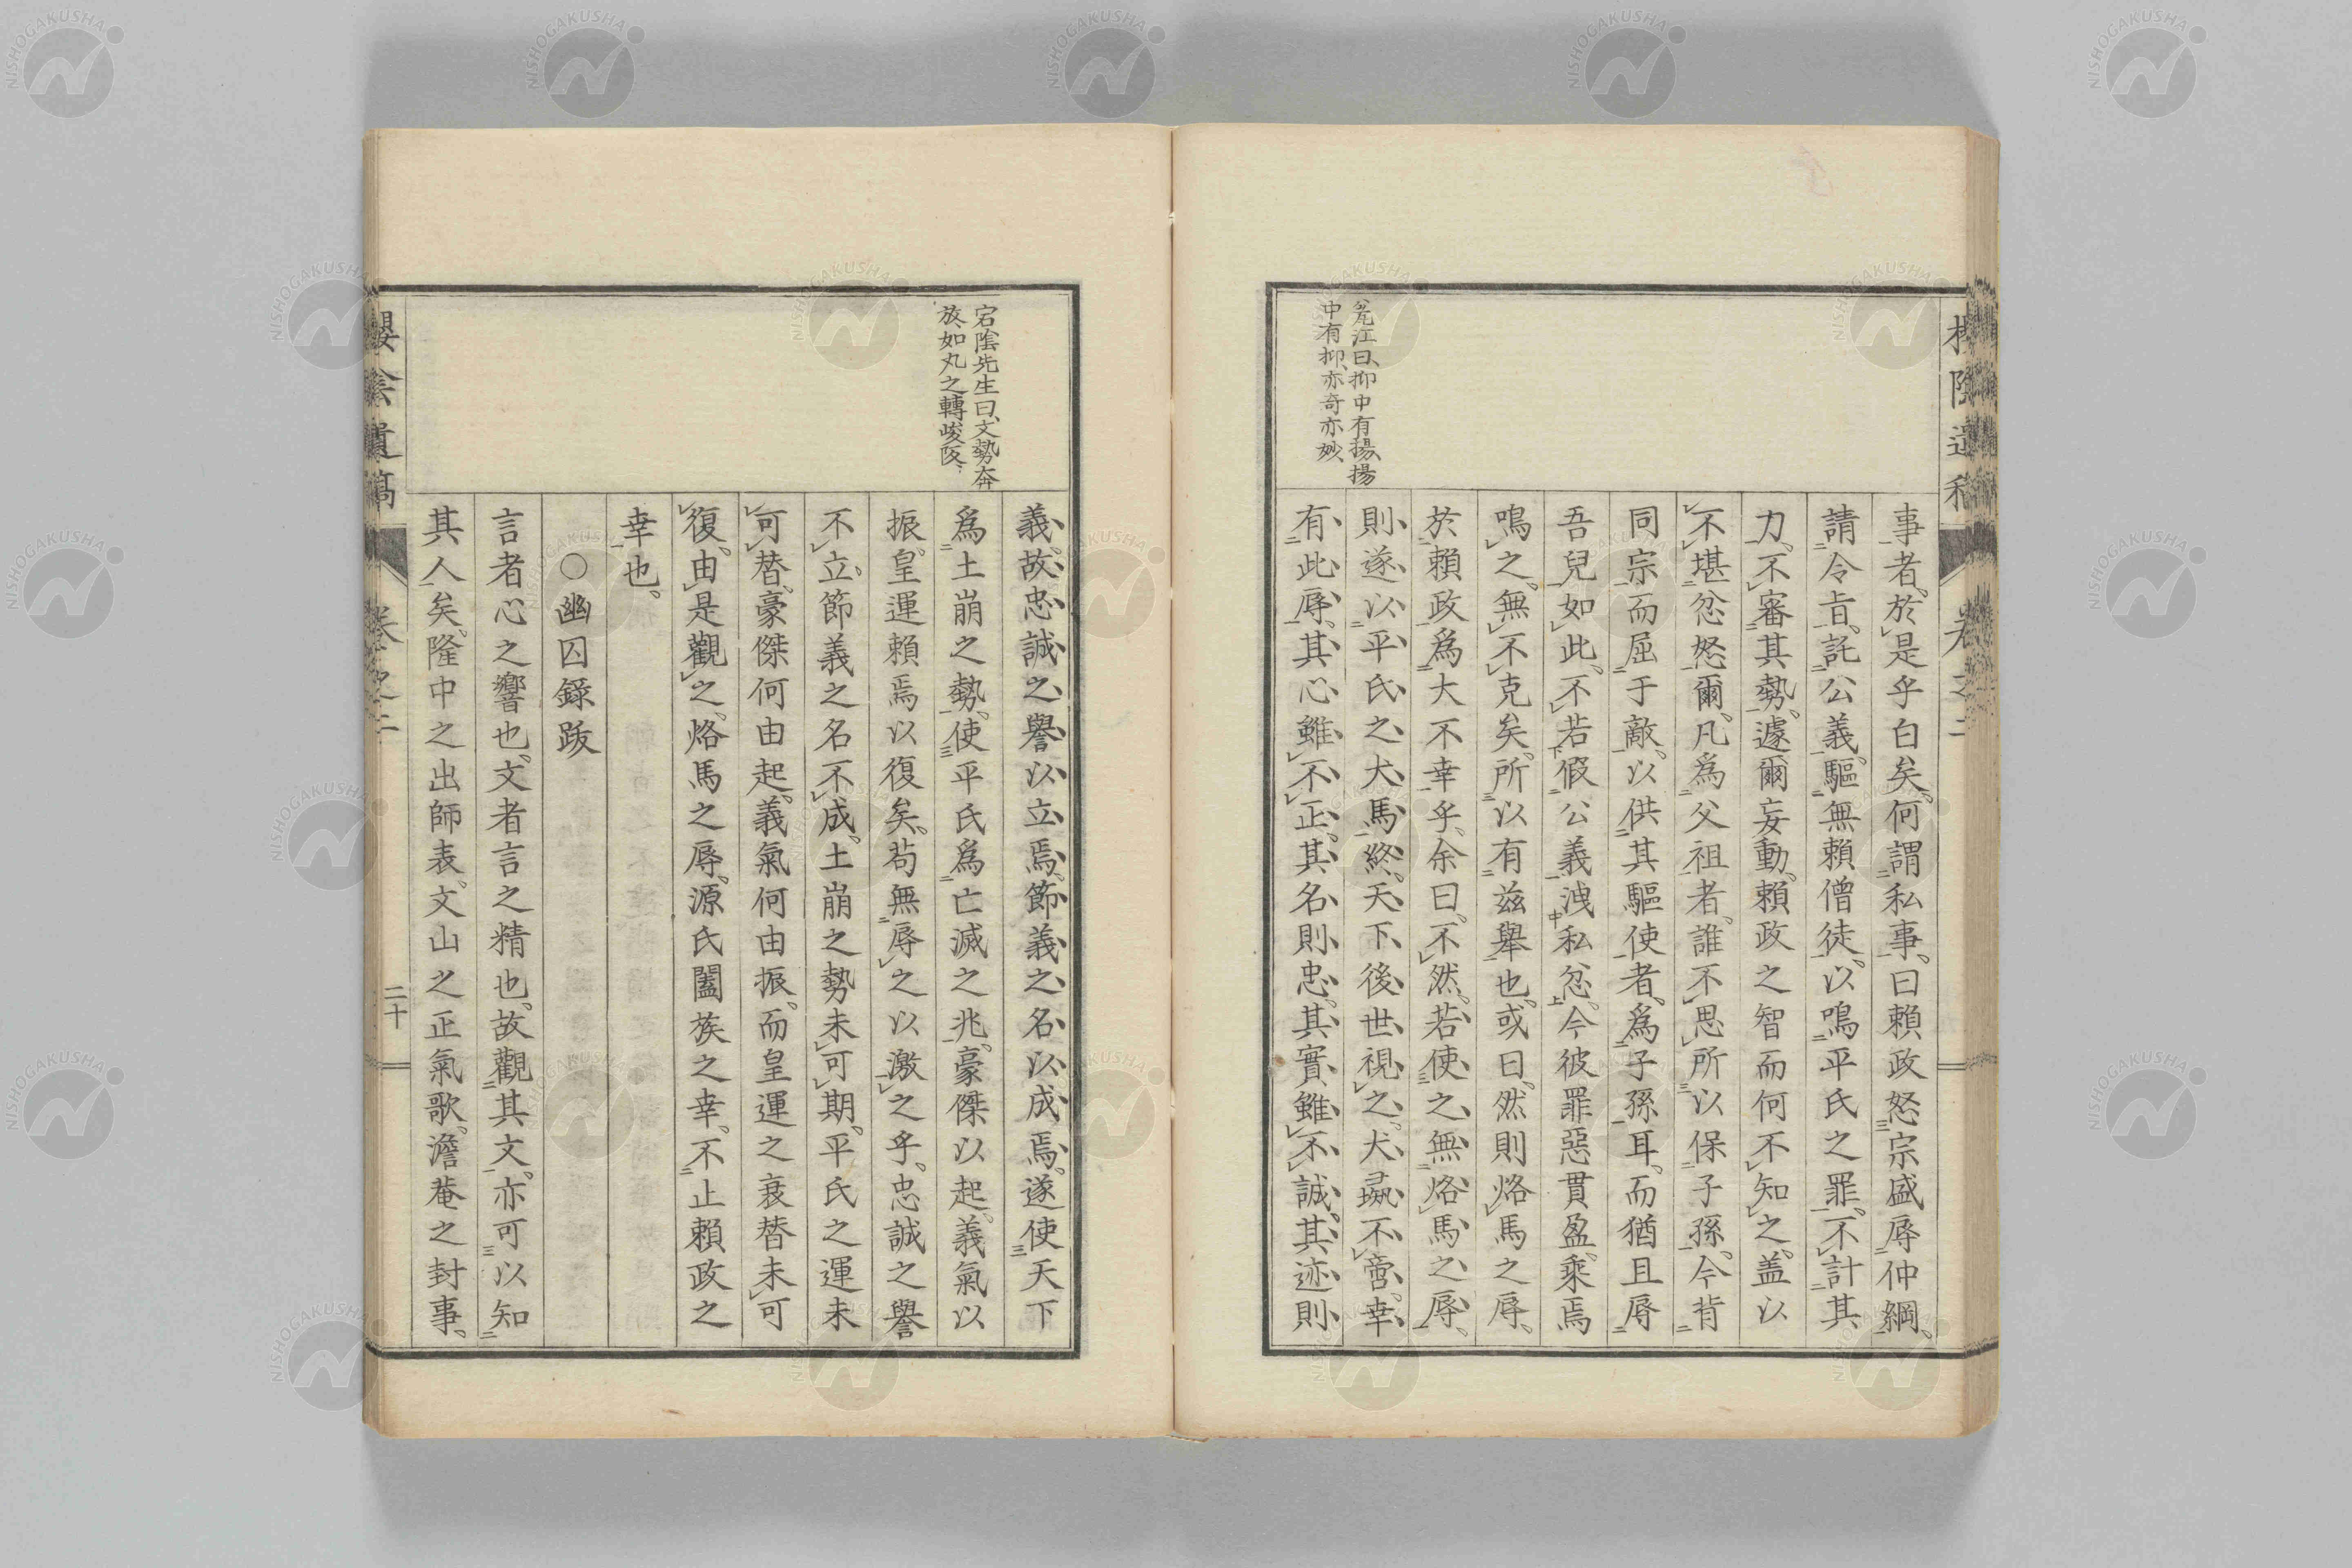 事者。於是乎白矣。何謂私事。曰賴政怒宗盛辱仲綱、
請令旨。託公義。驅無賴僧徒。以鳴平氏之罪。不計其
力。不審其勢。遽爾妄動。賴政之智而何不知之。盖以
不堪忿怒爾。凡爲父祖者。誰不思所以保子孫。今背
同宗而屈于敵。以供其驅使者。爲子孫耳。而猶且辱
吾兒如此、不若假公義洩私忿。今彼罪惡貫盈。乘焉
鳴之。無不克矣。所以有兹舉也。或曰。然則烙馬之辱、
於賴政爲大不幸乎。余曰。不然。若使之無烙馬之辱、
則遂以平氏之犬馬終。天下後世視之。犬彘不啻。幸
有此辱。其心雖不正。其名則忠。其實雖不誠。其迹則
瓮江曰、抑中有揚、揚
中有抑、亦奇亦妙、
義。故忠誠之譽以立焉。節義之名以成焉。遂使天下
爲土崩之勢。使平氏爲亡滅之兆。豪傑以起。義氣以
振。皇運賴焉以復矣。苟無辱之以激之乎。忠誠之譽
不立。節義之名不成。土崩之勢未可期。平氏之運未
可替。豪傑何由起。義氣何由振。而皇運之衰替未可
復。由是觀之。烙馬之辱。源氏闔族之幸。不止賴政之
幸也。
○幽囚錄跋
言者心之響也。文者言之精也。故觀其文。亦可以知
其人矣。隆中之出師表。文山之正氣歌。澹菴之封事、
宕陰先生曰、文勢奔
放、如丸之轉峻阪、
櫻陰遺稿 卷之二 二十